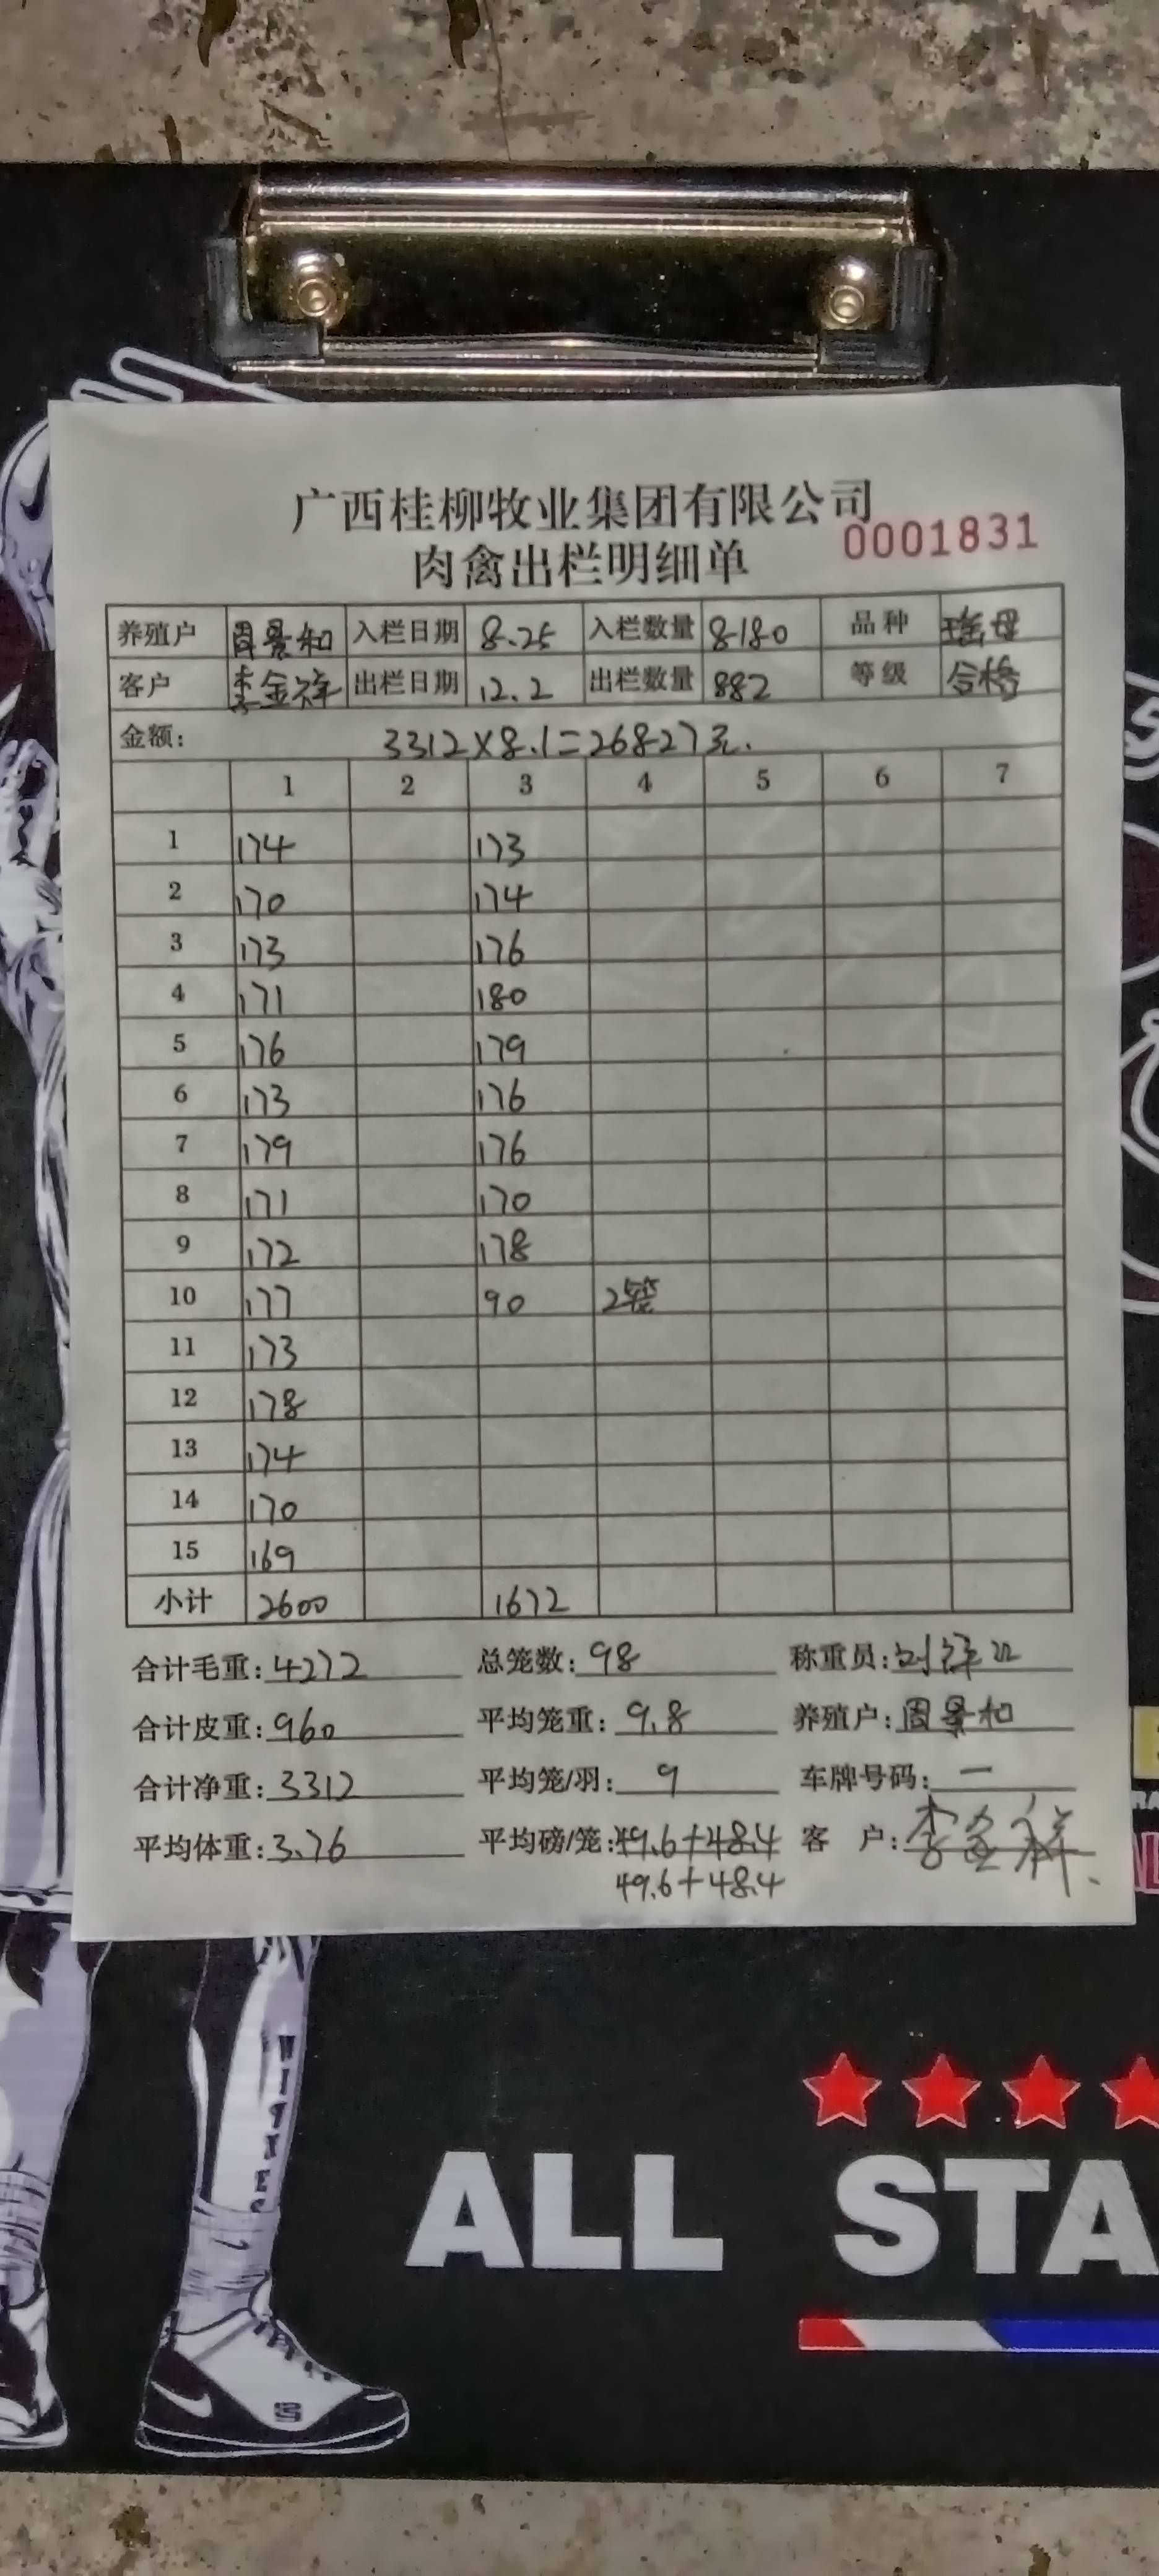 广西桂柳牧业集团有限公司
肉禽出栏明细单 0001831
养殖户 周景和 入栏日期 8.25 入栏数量 8180 品种 瑶母
客户 李金祥 出栏日期 12.2 出栏数量 882 等级 合格
金额: 3312×8.1=26827元.
1 2 3 4 5 6 7
1 174 173
2 170 174
3 173 176
4 171 180
5 176 179
6 173 176
7 179 176
8 171 170
9 172 178
10 177 90 2笼
11 173
12 178
13 174
14 170
15 169
小计 2600 1672
合计毛重: 4272 总笼数: 98 称重员:
合计皮重: 960 平均笼重: 9.8 养殖户: 周景和
合计净重: 3312 平均笼/羽: 9 车牌号码: 一
平均体重: 3.76 平均磅/笼: 49.6+48.4 客 户: 李金祥
49.6+48.4
ALL STA